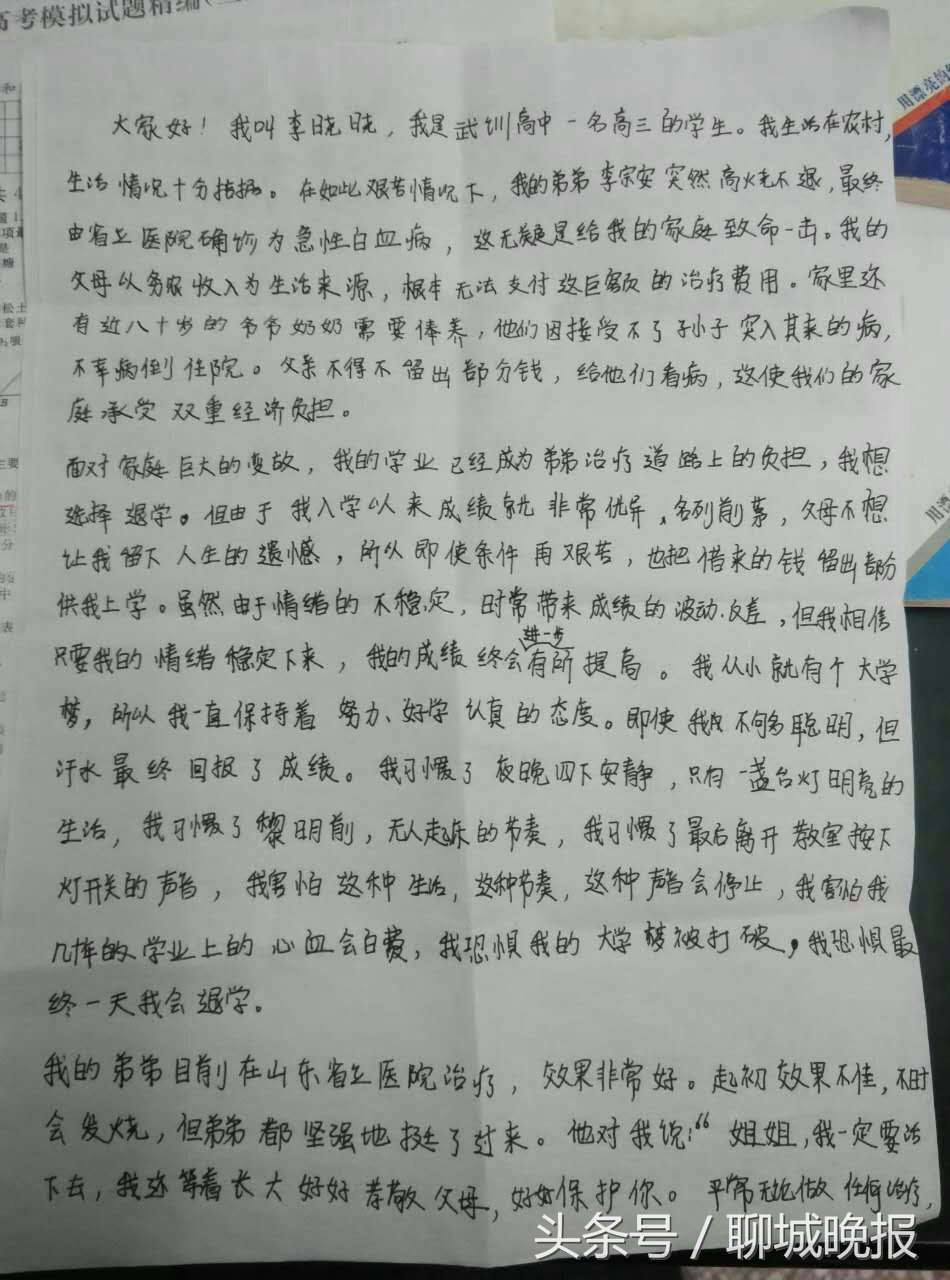 高考模拟试题精编
用漂亮的
大家好！我叫李晓晓，我是武训高中一名高三的学生。我生活在农村，
生活情况十分拮据。在如此艰苦情况下，我的弟弟李宗安突然高烧不退，最终
由省立医院确诊为急性白血病，这无疑是给我的家庭致命一击。我的
父母以务农收入为生活来源，根本无法支付这巨额的治疗费用。家里还
有近八十岁的爷爷奶奶需要俸养，他们因接受不了孙子突入其来的病，
不幸病倒住院。父亲不得不留出部分钱，给他们看病，这使我们的家
庭承受双重经济负担。
面对家庭巨大的变故，我的学业已经成为弟弟治疗道路上的负担，我想
选择退学。但由于我入学以来成绩就非常优异，名列前茅，父母不想
让我留下人生的遗憾，所以即使条件再艰苦，也把借来的钱留出部份
供我上学。虽然由于情绪的不稳定，时常带来成绩的波动反差，但我相信
只要我的情绪稳定下来，我的成绩终会进一步有所提高。我从小就有个大学
梦，所以我一直保持着努力、好学认真的态度。即使我不够多聪明，但
汗水最终回报了成绩。我习惯了夜晚四下安静，只有一盏台灯明亮的
生活，我习惯了黎明前，无人起床的节奏，我习惯了最后离开教室按下
灯开关的声音，我害怕这种生活，这种节奏，这种声音会停止，我害怕我
几年的学业上的心血会白费，我恐惧我的大学梦被打破，我恐惧最
终一天我会退学。
我的弟弟目前在山东省立医院治疗，效果非常好。起初效果不佳，不时
会发烧，但弟弟都坚强地挺了过来。他对我说：“姐姐，我一定要活
下去，我还等着长大好好孝敬父母，好好保护你。平常无论做任何治疗，
头条号 / 聊城晚报